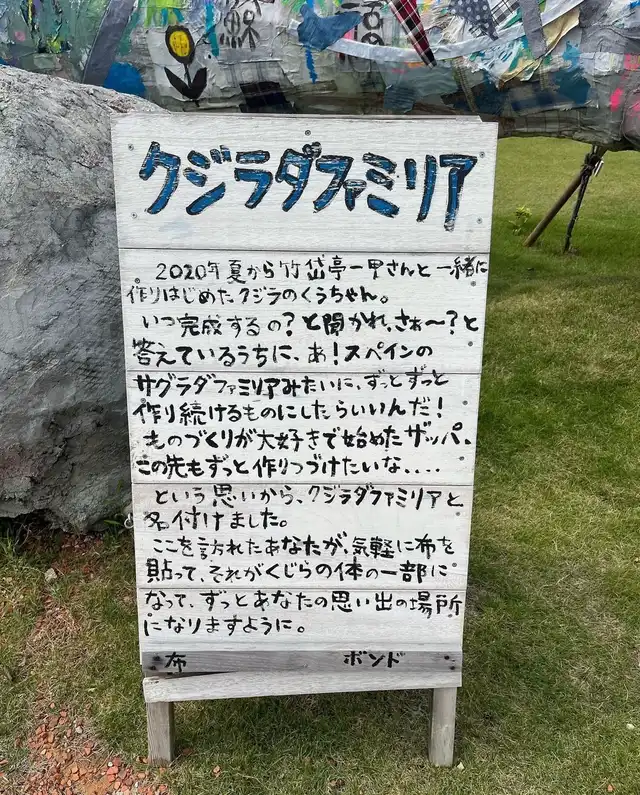 クジラダファミリア
2020年夏から竹岱亭一甲さんと一緒に
作りはじめたクジラのくうちゃん。
いつ完成するの？と聞かれ、さぁ〜？と
答えているうちに、あ！スペインの
サグラダファミリアみたいに、ずっとずっと
作り続けるものにしたらいいんだ！
ものづくりが大好きで始めたザッパ、
この先もずっと作りつづけたいな、...
という思いから、クジラダファミリアと
名付けました。
ここを訪れたあなたが、気軽に布を
貼って、それがくじらの体の一部に
なって、ずっとあなたの思い出の場所
になりますように。
布 ボンド